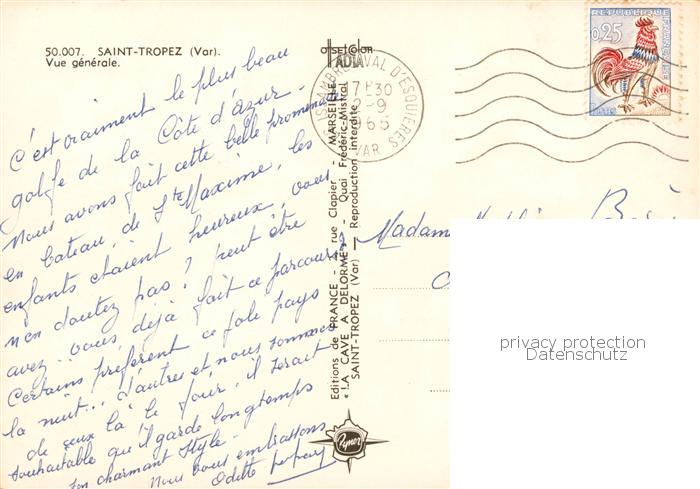 50.007. SAINT-TROPEZ (Var).
Vue générale.
C'est vraiment le plus beau
golfe de la Côte d'azur -
Nous avons fait cette belle promenade
en bateau, de Ste Maxime, les
enfants étaient heureux, vous
n'en doutez pas ? peut être
avez-vous déjà fait ce parcours
Certains préfèrent ce joli pays
la nuit... d'autres et nous sommes
de ceux là le jour, il serait
souhaitable qu'il garde longtemps
son charmant style -
Nous vous embrassons
Odette
OFFSETCOLOR
IADIA
ISSAMBRES VAL D'ESQUIERES
17H30
2-9
1965
VAR
Editions de FRANCE - rue Clapier - MARSEILLE
« LA CAVE A DELORME » - Quai Frédéric-Mistral
SAINT-TROPEZ (Var) — Reproduction interdite
RÉPUBLIQUE FRANÇAISE
0,25
POSTES
Madame
privacy protection
Datenschutz